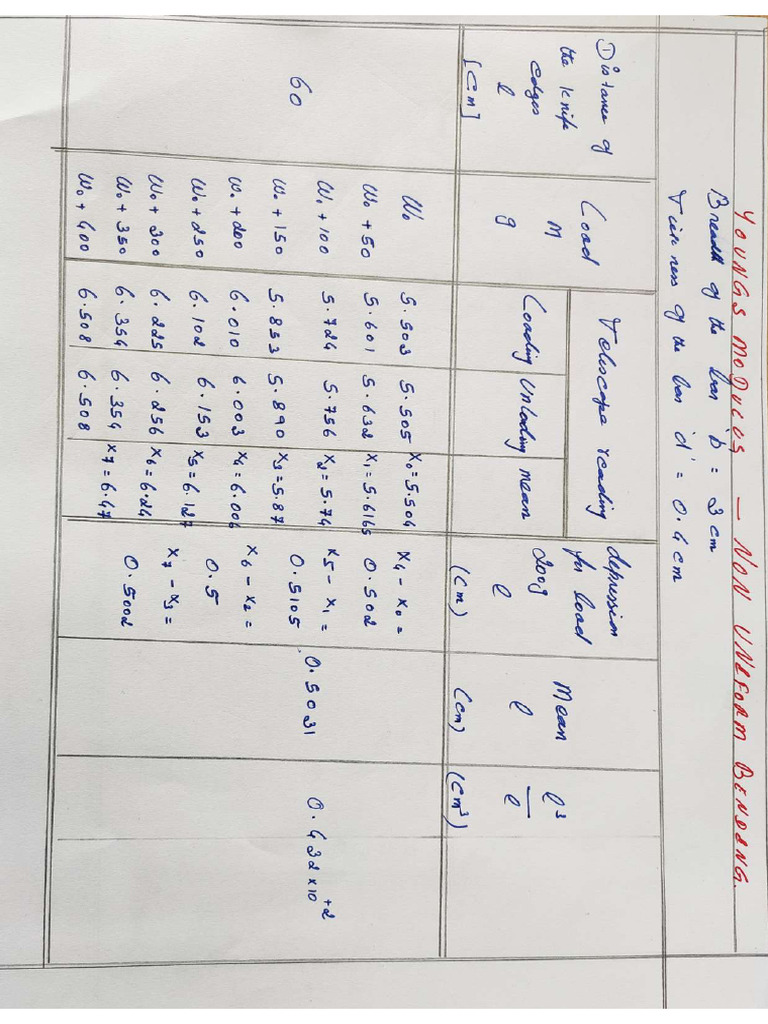 YOUNGS MODULUS — NON UNEFORM BENDENG.
Breadth of the bar 'b' = 3 cm
Tickness of the bar 'd' = 0.4 cm
Distance of
the knife
edges
l
[cm]
Load
M
g
Telescope reading
Loading
Unloading
mean
depression
for load
200g
e
(cm)
Mean
e
(cm)
l³
e
(cm³)
60
W₀ 5.503 5.505 x₀ = 5.504 x₄ - x₀ =
W₀ + 50 5.601 5.632 x₁ = 5.6165 0.502
W₀ + 100 5.724 5.756 x₂ = 5.74 x₅ - x₁ =
W₀ + 150 5.853 5.890 x₃ = 5.87 0.5105
W₀ + 200 6.010 6.003 x₄ = 6.006 x₆ - x₂ =
W₀ + 250 6.102 6.153 x₅ = 6.127 0.5
W₀ + 300 6.225 6.256 x₆ = 6.24 x₇ - x₃ =
W₀ + 350 6.354 6.354 x₇ = 6.47 0.5002
W₀ + 400 6.508 6.508
0.5031
0.432 x 10⁺²